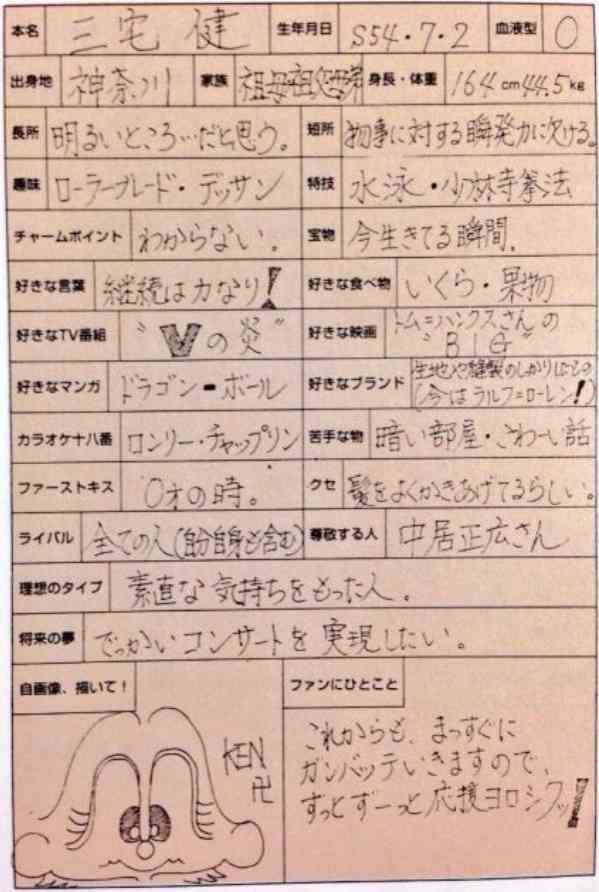 本名 三宅 健 生年月日 S54・7・2 血液型 O
出身地 神奈川 家族 祖母祖父母弟 身長・体重 164cm 44.5kg
長所 明るいところ…だと思う。 短所 物事に対する瞬発力に欠ける。
趣味 ローラーブレード・デッサン 特技 水泳・少林寺拳法
チャームポイント わからない。 宝物 今生きてる瞬間。
好きな言葉 継続は力なり! 好きな食べ物 いくら・果物
好きなTV番組 "Vの炎" 好きな映画 トム=ハンクスさんの
"BIG"
好きなマンガ ドラゴン・ボール 好きなブランド 生地や縫製のしっかりしたもの
(今はラルフ=ローレン!)
カラオケ十八番 ロンリー・チャップリン 苦手な物 暗い部屋・こわーい話
ファーストキス 0才の時。 クセ 髪をよくかきあげてるらしい。
ライバル 全ての人(自分自身も含む) 尊敬する人 中居正広さん
理想のタイプ 素直な気持ちをもった人。
将来の夢 でっかいコンサートを実現したい。
自画像、描いて! ファンにひとこと
KEN
卍
これからも、まっすぐに
ガンバッテいきますので、
ずっとずーっと応援ヨロシクッ!